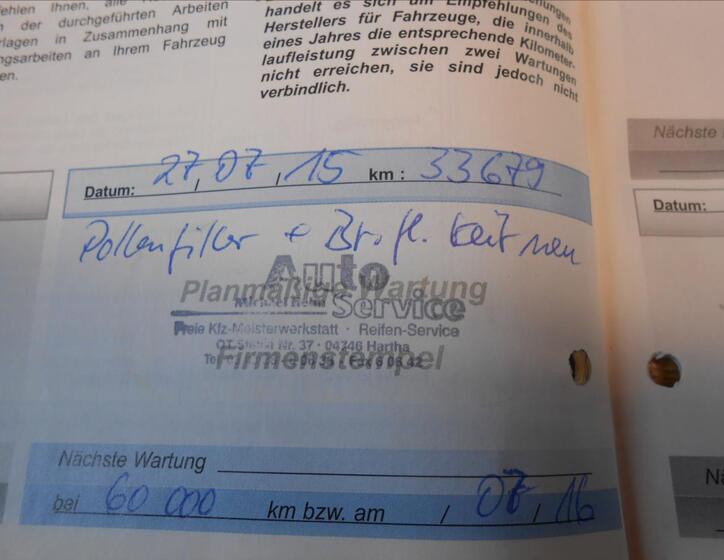 fehlen Ihnen, alle
der durchgeführten Arbeiten
lagen in Zusammenhang mit
gsarbeiten an Ihrem Fahrzeug
en.
handelt es sich um Empfehlungen des
Herstellers für Fahrzeuge, die innerhalb
eines Jahres die entsprechende Kilometer-
laufleistung zwischen zwei Wartungen
nicht erreichen, sie sind jedoch nicht
verbindlich.
Datum: 27/07/15 km : 33679
Pollenfilter + Br.fl. Keit neu
Auto
Planmäßige Wartung
Service
Freie Kfz-Meisterwerkstatt · Reifen-Service
Nr. 37 · 04746 Hartha
Firmenstempel
Nächste Wartung
bei 60 000 km bzw. am / 07 / 16
Nächste
Datum: